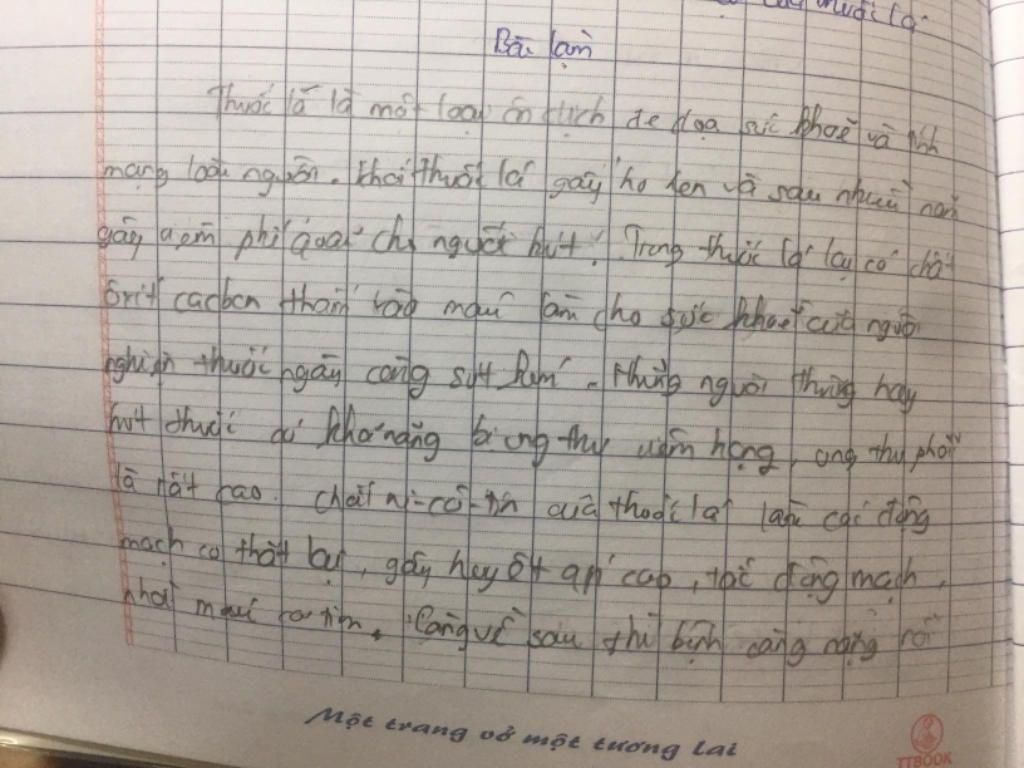 muối lạ
Bài làm
Thuốc lá là một loại ôn dịch đe dọa sức khoẻ và tính
mạng loài người. Khói thuốc lá gây ho hen và sau nhiều năm
gây viêm phế quản cho người hút. Trong thuốc lá lại có chất
ôxít cacbon thấm vào máu làm cho sức khoẻ của người
nghiện thuốc ngày càng sút kém. Những người thường hay
hút thuốc có khả năng bị ung thư vòm họng, ung thư phổi
là rất cao. Chất ni-cô-tin của thuốc lá làm các động
mạch co thắt lại, gây huyết áp cao, tắc động mạch,
nhồi máu cơ tim. Càng về sau thì bệnh càng nặng rồi
Một trang vở một tương lai
TTBOOK